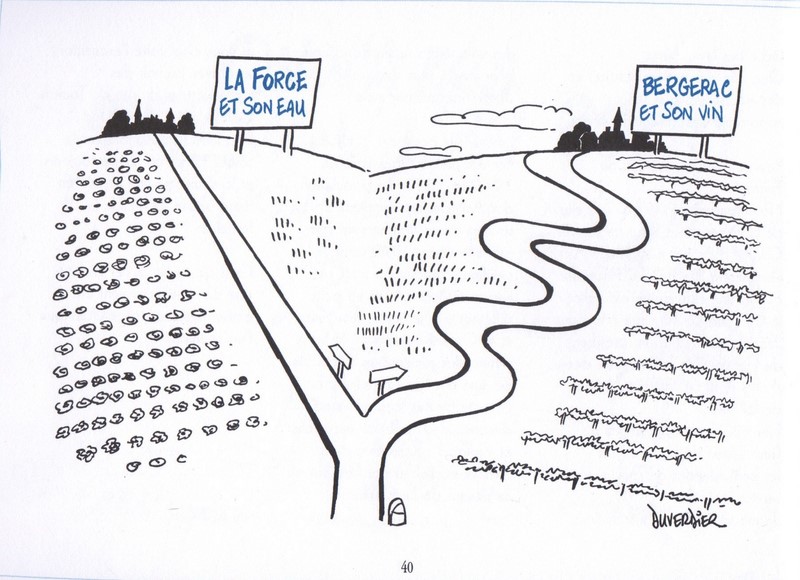 LA FORCE
ET SON EAU
BERGERAC
ET SON VIN
DUVERDIER
40